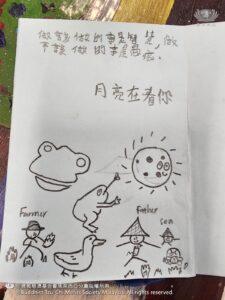 做當做的事是智慧,做
不該做的事是愚癡,
月亮在看你
Farmer
Father
son
Buddhist Tzu-Chi Merits Society Malaysia. All rights reserved.